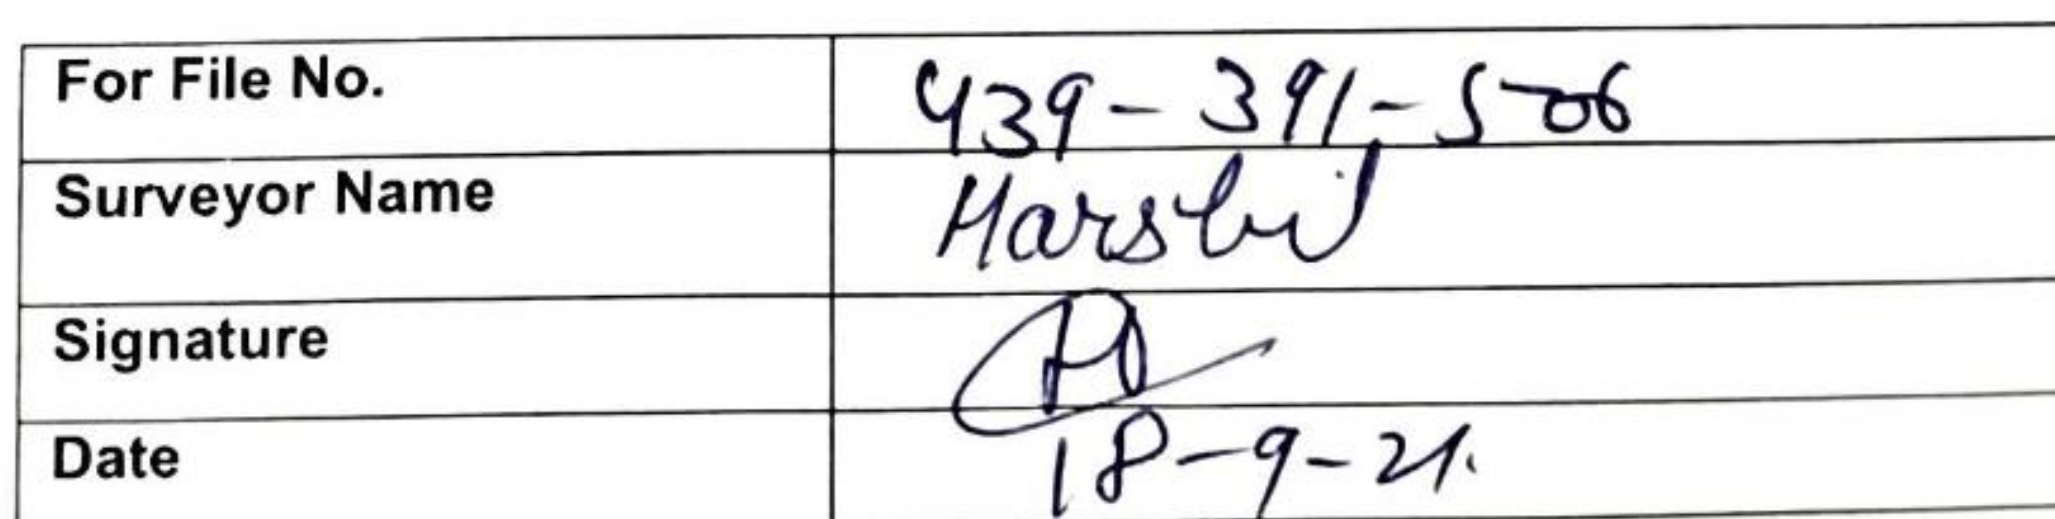 For File No. 439-391-506
Surveyor Name Harshil
Signature
Date 18-9-21.